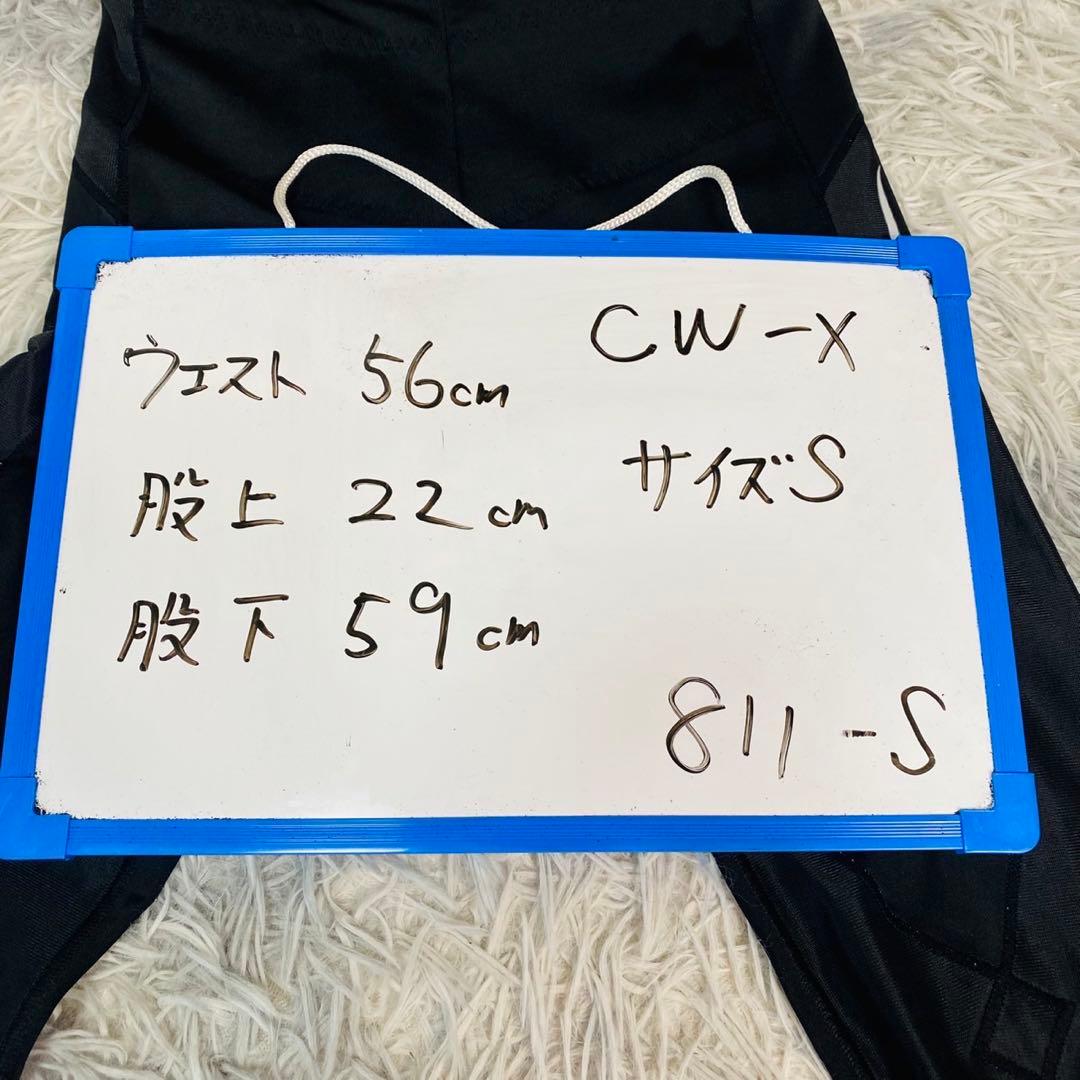 ウエスト 56cm
股上 22cm
股下 59cm
CW-X
サイズS
811-S